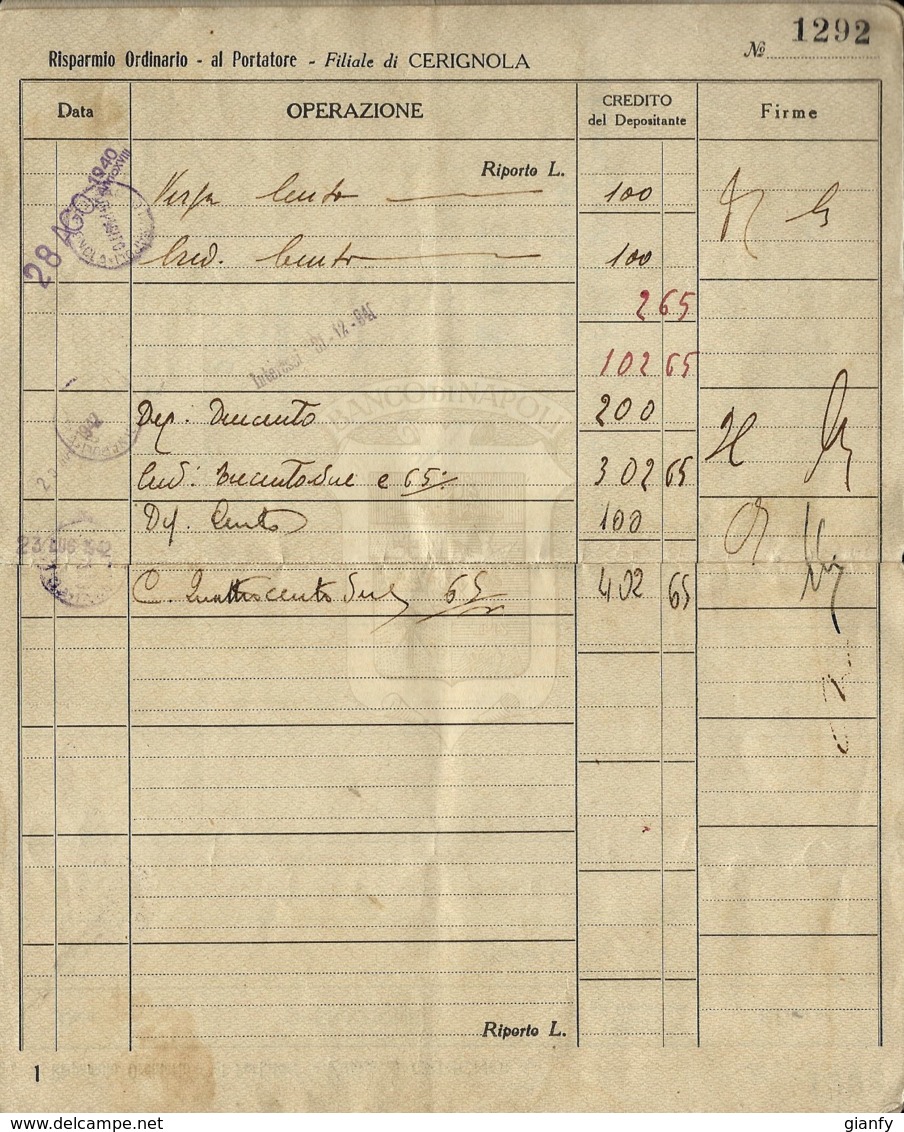 Nº 1292
Risparmio Ordinario - al Portatore - Filiale di CERIGNOLA
Data OPERAZIONE CREDITO del Depositante Firme
Riporto L.
28 AGO. 1940 Anno XVIII
Cento 100
Cred. Cento 100
2 65
Interessi 31-12-
102 65
BANCO DI NAPOLI
Dep. Duecento 200
1942
Cred: Trecentodue e 65 302 65
Dep. Cento 100
23 LUG 1942
C. Quattrocentodue 65 402 65
Riporto L.
1
gianfy